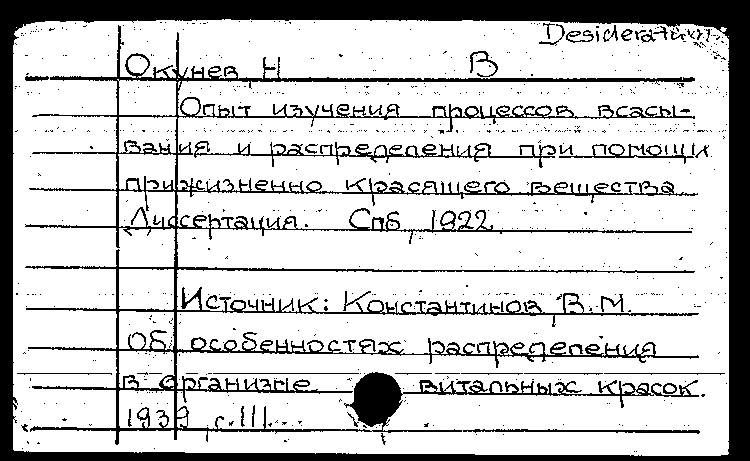 Desideratum
Окунев, Н В
Опыт изучения процессов всасы-
вания и распределения при помощи
прижизненно красящего вещества
Диссертация. Спб, 1922
Источник: Константинов, В.М.
Об особенностях распределения
в организме витальных красок.
1939, с.111.